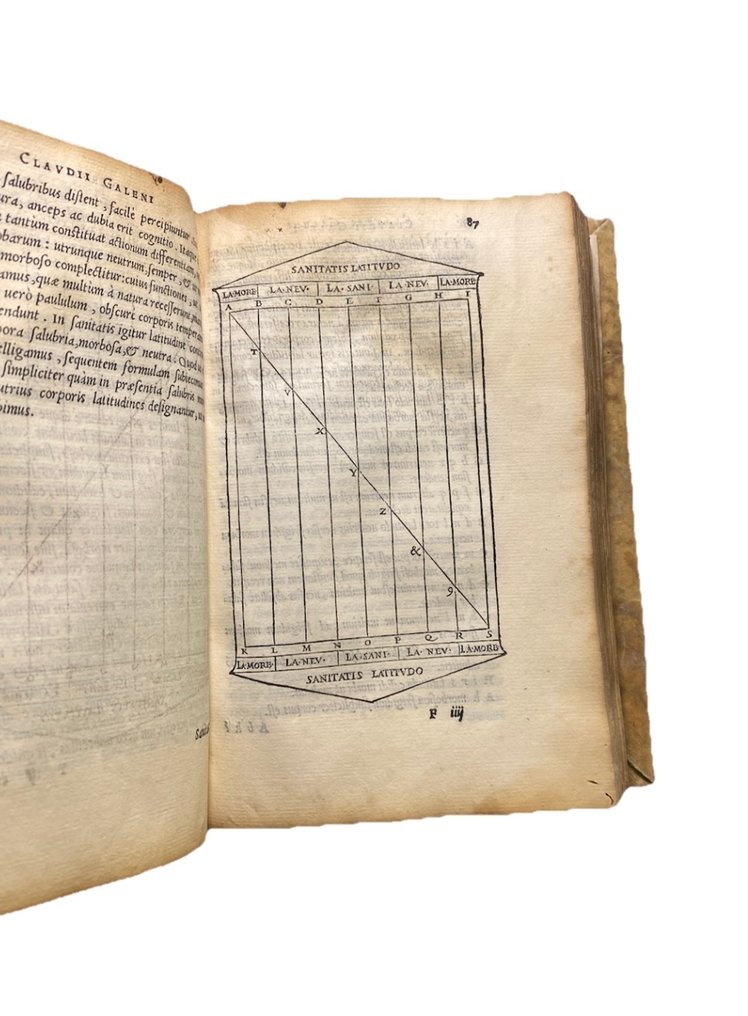 CLAVDII GALENI
salubribus distent, facilè percipiuntur
ura, anceps ac dubia erit cognitio, itaque
tantum constituat actionum differentiam,
obarum: utrunque neutrum, semper, &
morboso complectitur: cuius functiones,
amus, quæ multùm à natura recesserunt,
uerò paululum, obscuri corporis temper
endunt. in sanitatis igitur latitudine
pora salubria, morbosa, & neutra. Quod
elligamus, sequentem formulam subiecimus
simpliciter quàm in præsentia salubris
utrius corporis latitudines designantur,
bimus.
87
SANITATIS LATITVDO
LA·MORB LA·NEV· LA·SANI· LA·NEV· LA·MORB
A B C D E F G H I
T
V
X
Y
Z
&
9
K L M N O P Q R S
LA·MORB· LA·NEV· LA·SANI· LA·NEV· LA·MORB
SANITATIS LATITVDO
F iiij